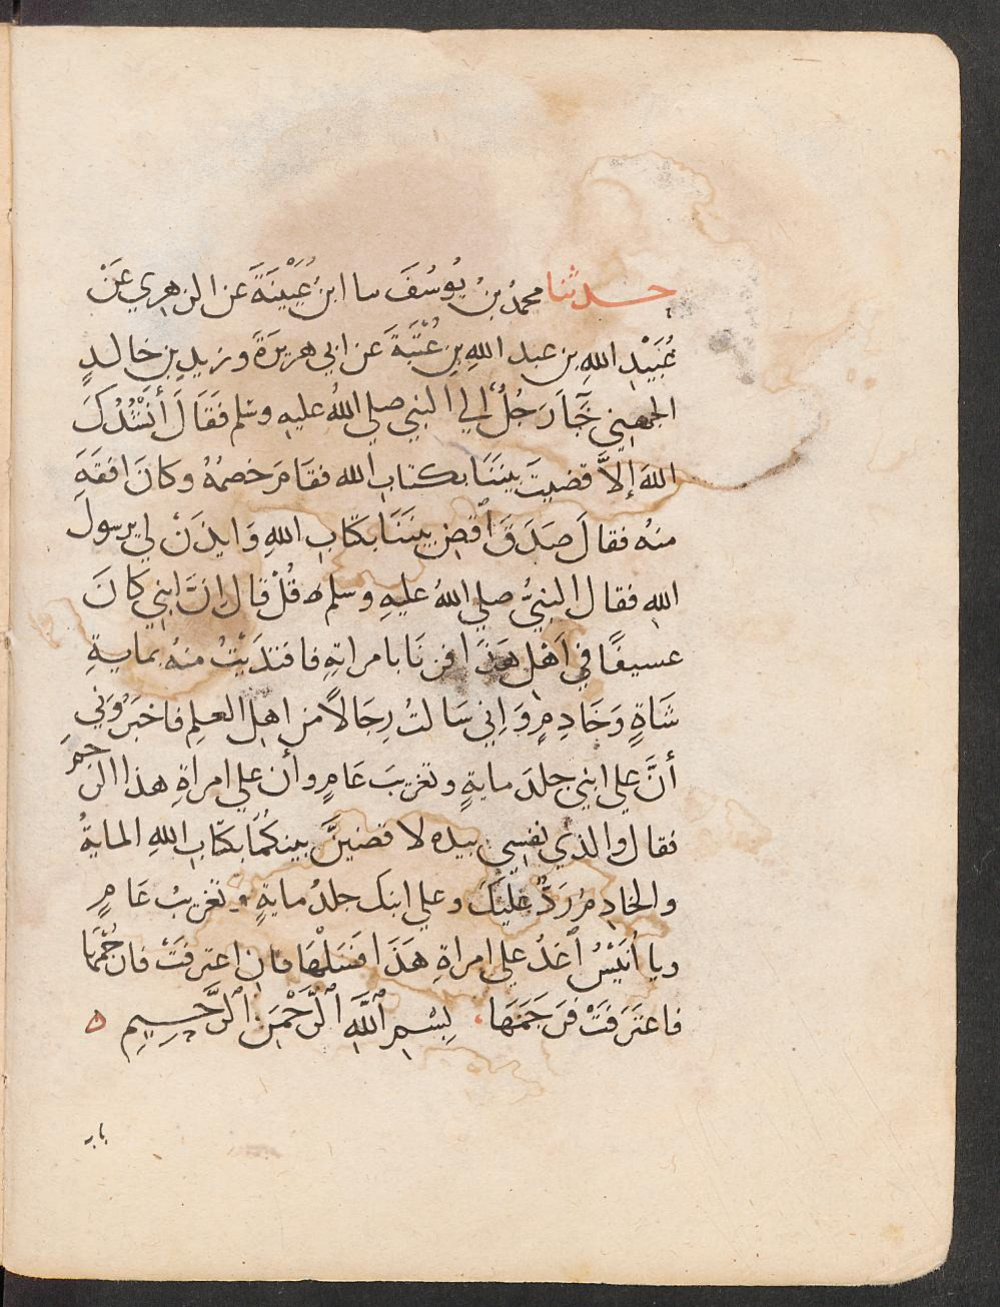 حدثنا محمدُ بنُ يُوسُفَ سا ابنُ عُيَيْنَةَ عن الزهري عَنْ
عُبَيْدِ اللهِ بن عبد اللهِ بن عُتْبَةَ عَن ابي هريرَةَ وزيدِ بنِ خالدٍ
الجهيني جَّآ رَجُلٌ الي النبي صلي اللهُ عليهِ وسلم فَقَالَ أَنْشُدُكَ
اللهَ إلاَّ قضيتَ بينَنَا بكتاب الله فقامَ خصمُهُ وكانَ افقَهَ
منهُ فقالَ صَدَقَ اقضِ بينَنَا بكتاب اللهِ وَايذَنْ لي يرسولَ
اللهِ فقال النبيُّ صلي اللهُ عليهِ وسلم ه قُلْ قال إنَّ ابني كانَ
عسيفًا في اَهْلِ هَذَا فزنَا بامراتِهِ فافتدَيْتُ منهُ بمايةِ
شَاةٍ وَخَادِمٍ وَإني سَالتُ رِجَالاً من اهل العلمِ فاخبَرُونِي
أنَّ علي ابني جلدَ مايةٍ وتغريبَ عَامٍ وأن علي امراةِ هذا الرجم
فقال والذي نفسي بيده لاقضينَّ بينكُمَا بكتاب اللهِ المايةُ
والخادِمُ رَدٌّ عَلَيْكَ وعلي ابنك جلدُ مايةٍ وتغريبُ عَامٍ
ويا أُنَيْسُ اغدُ علي امراةِ هَذَا فسَلْهَا فان اعترفَتْ فارجُمْهَا
فاعتَرَفَتْ فرَجَمَهَا بِسْمِ ٱللَّهِ ٱلرَّحْمَنِ ٱلرَّحِيمِ ه
باب